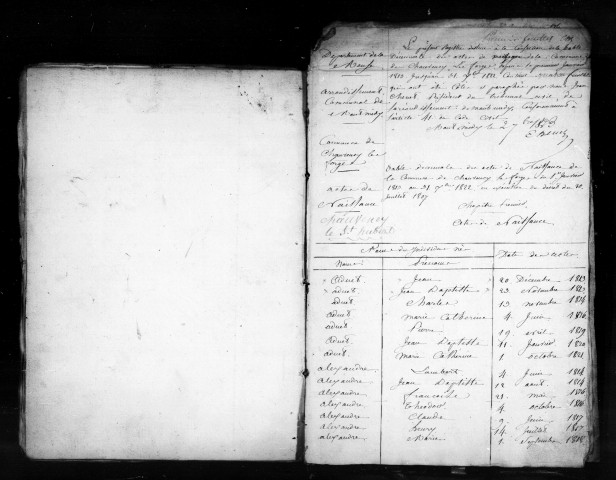 Département de la
Meuse
arrondissement
Communal de
Montmédy
Commune de
Chauvency le
forge
acte de
Naissance
Chauvency
le St hubert
Le présent Registre destiné à la confection de la table
décennale des actes de de la Commune
de Chauvency le forge depuis le premier janvier
1813 jusqu'au 31 Xbre 1822 Contenant feuillets
qui ont été côtés et paraphés par nous Jean
Président du tribunal civil de
l'arrondissement de montmédy, Conformément à
l'article 41 du Code Civil
Montmédy le 27
Table décennale des actes de Naissance de
la Commune de Chauvency le forge du 1er janvier
1813 au 31 Xbre 1822 en exécution du décret du 20
juillet 1807
Chapitre Premier
Acte de Naissance
Noms Prénoms Date des actes
Adnet Jean 20 Décembre 1813
adnet Jean Baptiste 23 Novembre 1813
adnet Charles 13 novembre 1814
adnet marie Catherine 4 Juin 1816
adnet Pierre 19 avril 1819
adnet Jean Baptiste 11 Janvier 1820
adnet Marie Catherine 1 octobre 1821
alexandre Lambert 4 Juin 1814
alexandre Jean Baptiste 12 août 1814
alexandre Francoise 21 mai 1816
alexandre Theodore 4 octobre 1816
alexandre Claude 9 Juin 1817
alexandre henry 14 Juillet 1817
alexandre Marie 1 Septembre 1818